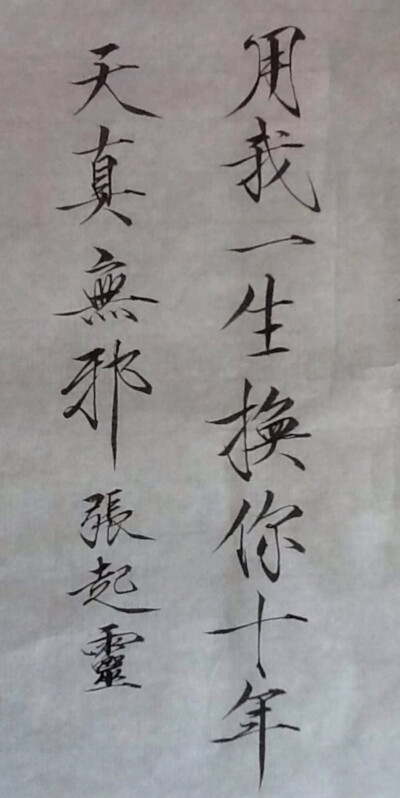 用我一生換你十年
天真無邪 張起靈